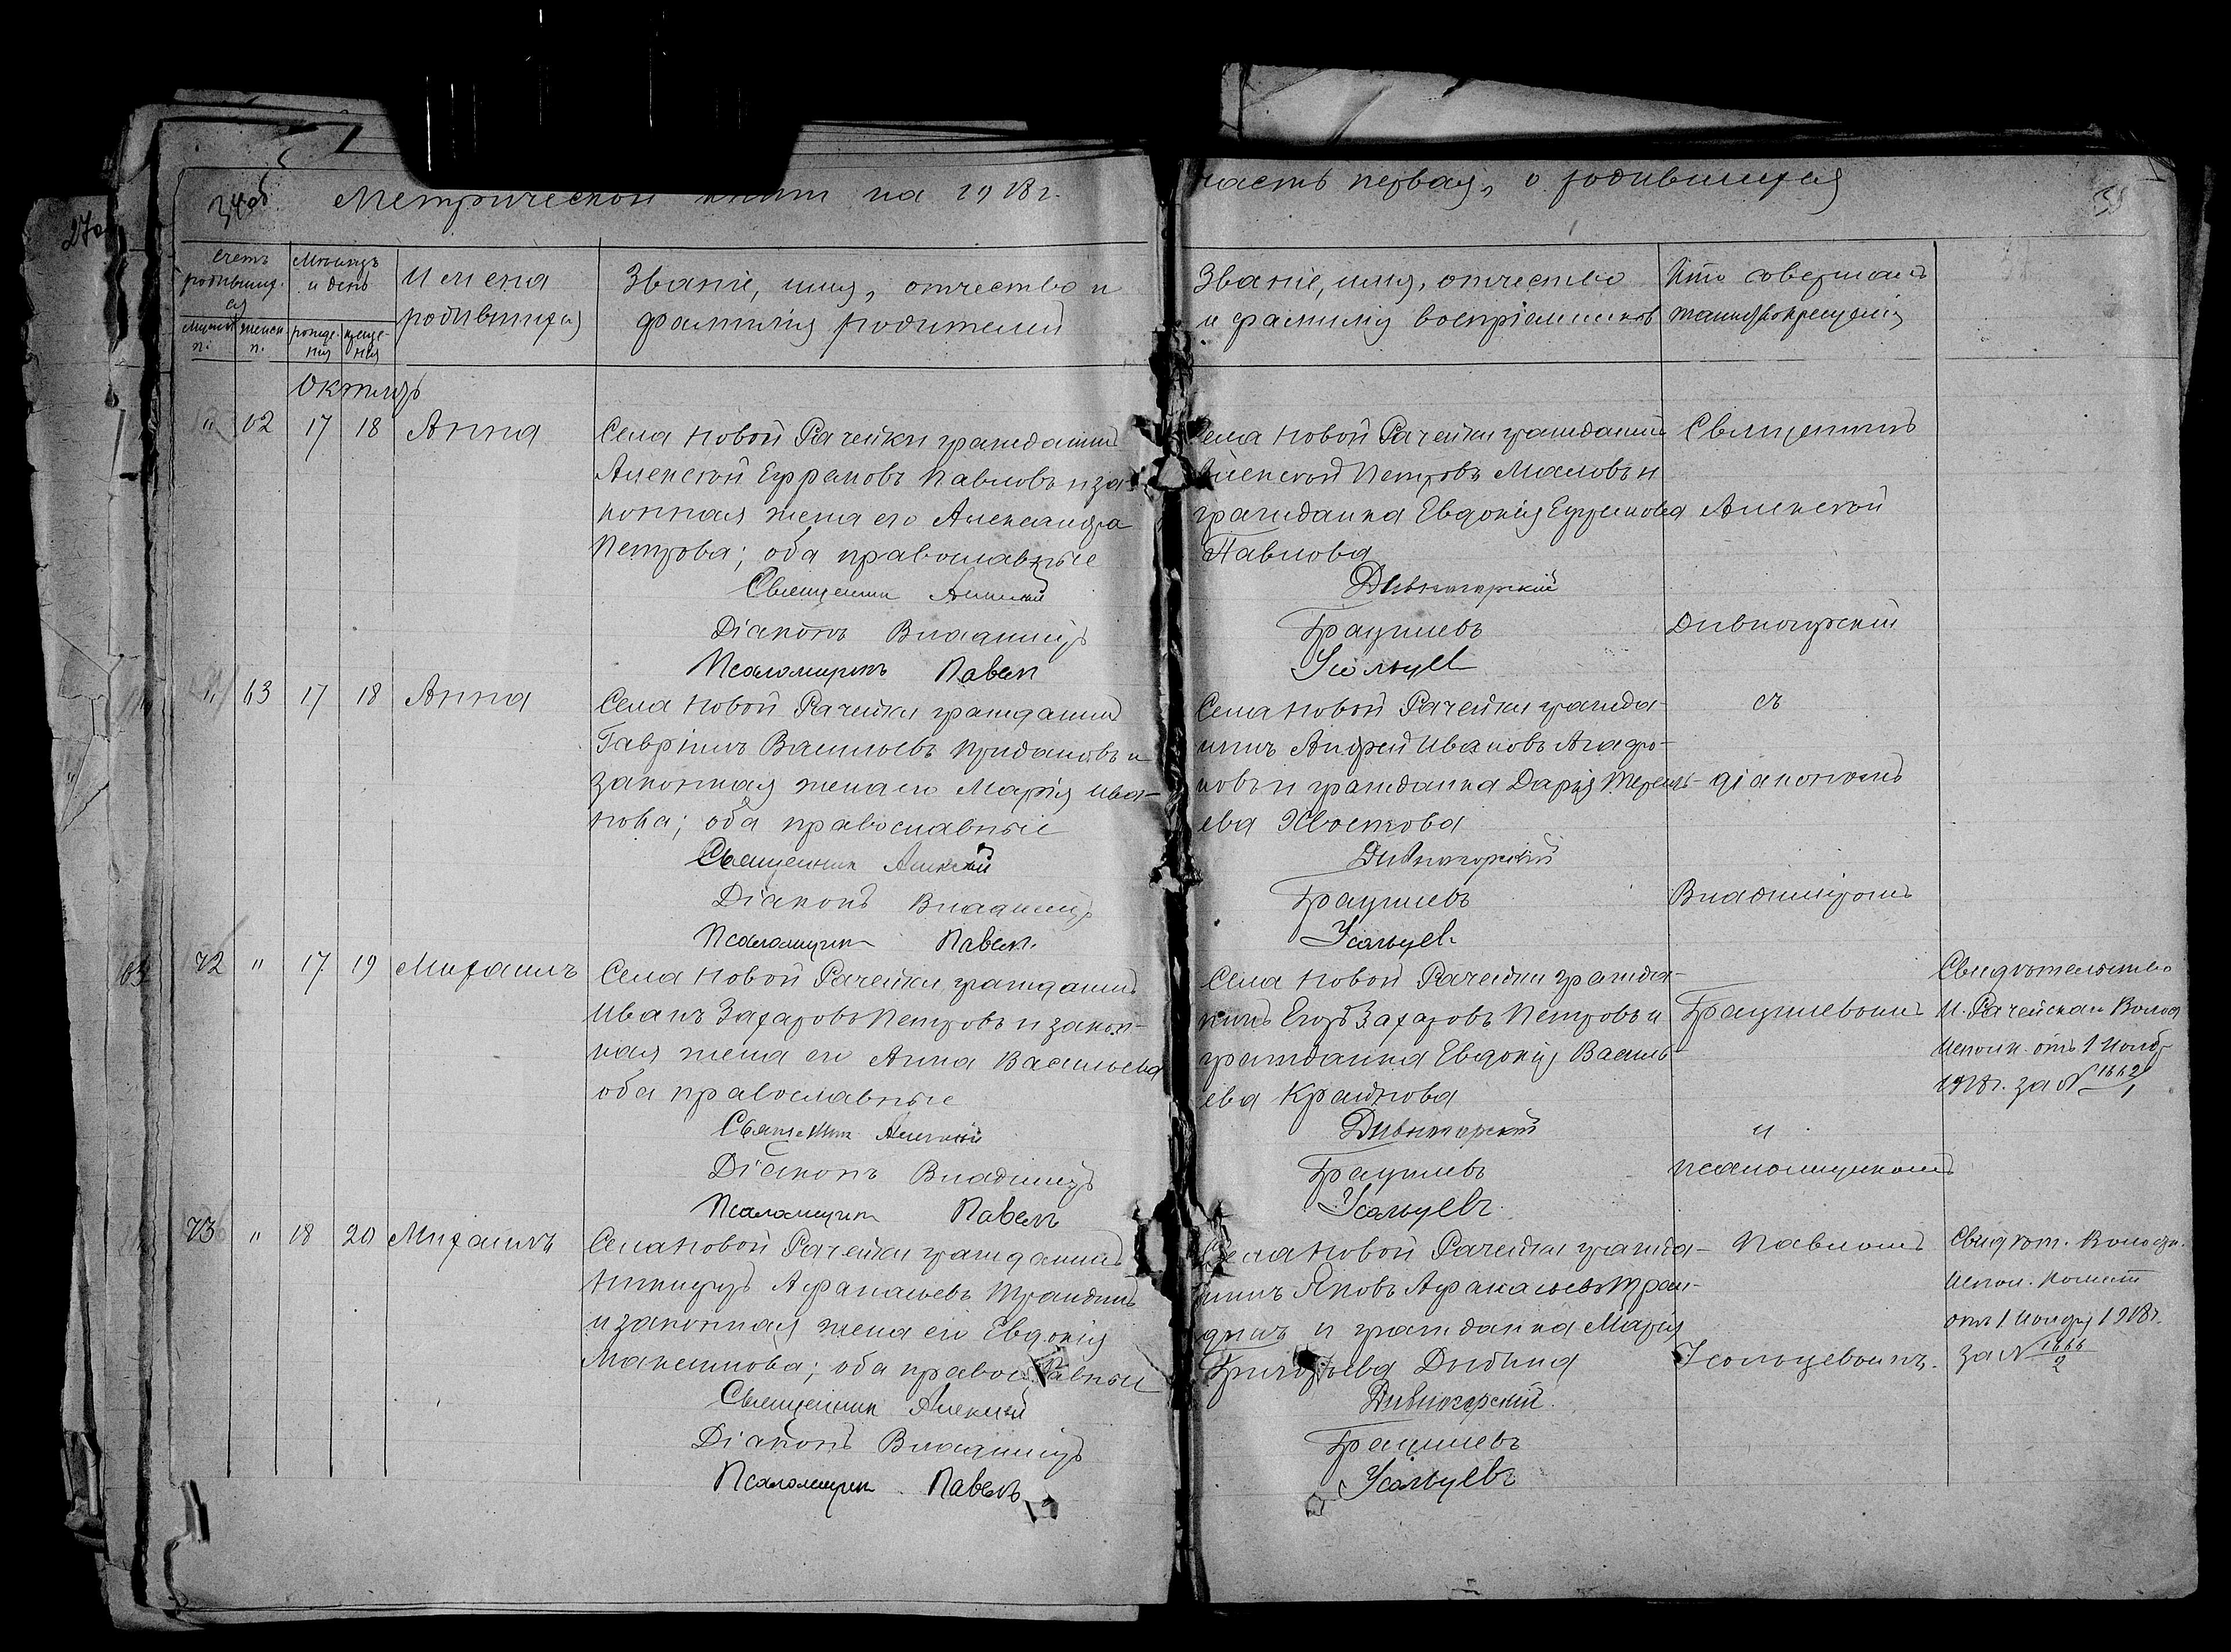 34об
Метрической книги на 1918 г.
часть первая, о родившихся
35
270
Счетъ родившихся
Мѣсяцъ и день
Имена родившихся
Званіе, имя, отчество и фамилія родителей
Званіе, имя, отчество и фамилія воспріемниковъ
Кто совершалъ таинство крещенія
мужск. п.
женск. п.
рожде-нія
креще-нія
Октябрь
" 62 17 18 Анна
Села Новой Рачейки гражданинъ
Алексѣй Ефремовъ Павловъ и за-
конная жена его Александра
Петрова; оба православные
Священникъ Алексѣй
Діаконъ Владиміръ
Псаломщикъ Павелъ
Села Новой Рачейки гражданинъ
Алексѣй Петровъ Маловъ и
гражданка Евдокія Ефремова
Павлова
Дивногорскій
Усольцевъ
Священникъ
Алексѣй
Дивногорскій
" 63 17 18 Анна
Села Новой Рачейки гражданинъ
Гавріилъ Васильевъ Придановъ и
законная жена его Марія Ива-
нова; оба православные
Священникъ Алексѣй
Діаконъ Владиміръ
Псаломщикъ Павелъ
Села Новой Рачейки гражда-
нинъ Андрей Ивановъ Агафо-
новъ и гражданка Дарія Терен-
ева Хвостова
Дивногорскій
Усольцевъ
съ
діакономъ
Владиміромъ
72 " 17 19 Михаилъ
Села Новой Рачейки гражданинъ
Иванъ Захаровъ Петровъ и закон-
ная жена его Анна Васильева
оба православные
Священникъ Алексѣй
Діаконъ Владиміръ
Псаломщикъ Павелъ
Села Новой Рачейки гражда-
нинъ Егоръ Захаровъ Петровъ и
гражданка Евдокія Василь-
ева Крайнова
Дивногорскій
Усольцевъ
и
псаломщикомъ
Свидѣтельство
Н. Рачейскаго Волос.
Исполк. отъ 1 Нояб.
1918г. за № 1662/1
73 " 18 20 Михаилъ
Села Новой Рачейки гражданинъ
Никифоръ Афанасьевъ
и законная жена его Евдокія
Максимова; оба православные
Священникъ Алексѣй
Діаконъ Владиміръ
Псаломщикъ Павелъ
Села Новой Рачейки гражда-
нинъ Яковъ Афанасьевъ
и гражданка Марія
Григорьева
Дивногорскій
Усольцевъ
Павломъ
Усольцевымъ.
Свидѣт. Волостн.
Испол. Комит
отъ 1 Ноября 1918г.
за № 1666/2